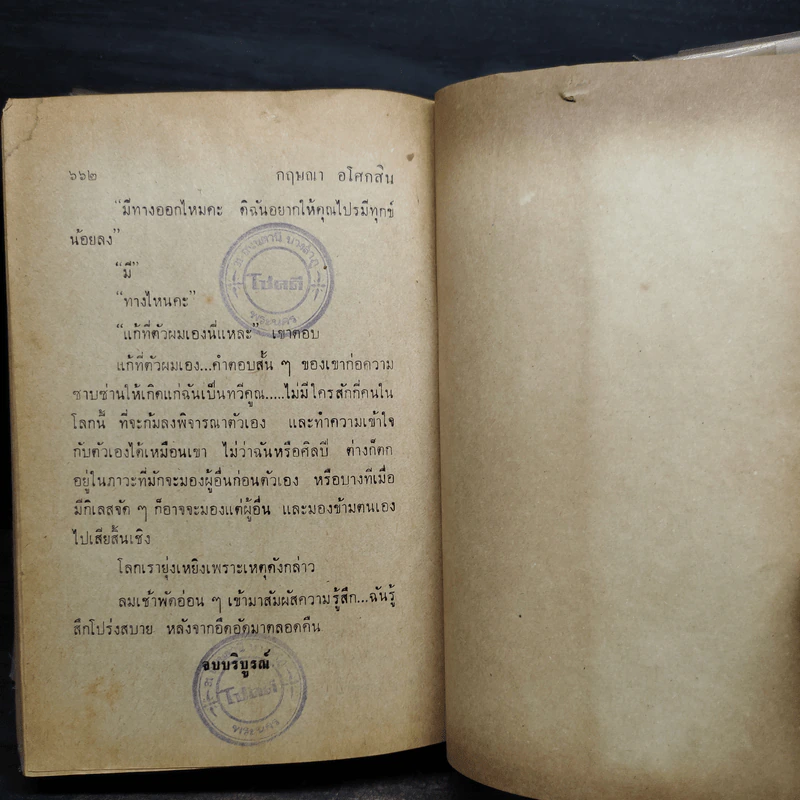 ๖๖๒
กฤษณา อโศกสิน
“มีทางออกไหมคะ ดิฉันอยากให้คุณไปรมีทุกข์
น้อยลง”
“มี”
“ทางไหนคะ”
“แก้ที่ตัวผมเองนี่แหละ” เขาตอบ
แก้ที่ตัวผมเอง...คำตอบสั้น ๆ ของเขาก่อความ
ซาบซ่านให้เกิดแก่ฉันเป็นทวีคูณ.....ไม่มีใครสักกี่คนใน
โลกนี้ ที่จะก้มลงพิจารณาตัวเอง และทำความเข้าใจ
กับตัวเองได้เหมือนเขา ไม่ว่าฉันหรือศิลป์ ต่างก็ตก
อยู่ในภาวะที่มักจะมองผู้อื่นก่อนตัวเอง หรือบางทีเมื่อ
มีกิเลสจัด ๆ ก็อาจจะมองแต่ผู้อื่น และมองข้ามตนเอง
ไปเสียสิ้นเชิง
โลกเรายุ่งเหยิงเพราะเหตุดังกล่าว
ลมเช้าพัดอ่อน ๆ เข้ามาสัมผัสความรู้สึก...ฉันรู้
สึกโปร่งสบาย หลังจากอึดอัดมาตลอดคืน
จบบริบูรณ์
พระนคร
พระนคร